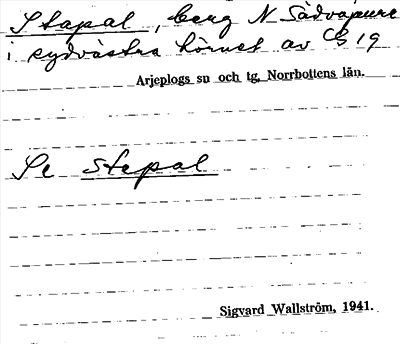 Stapal, berg N Sädvajaure
i sydvästra hörnet av CG 19
Arjeplogs sn och tg, Norrbottens län.
Se stepal
Sigvard Wallström, 1941.